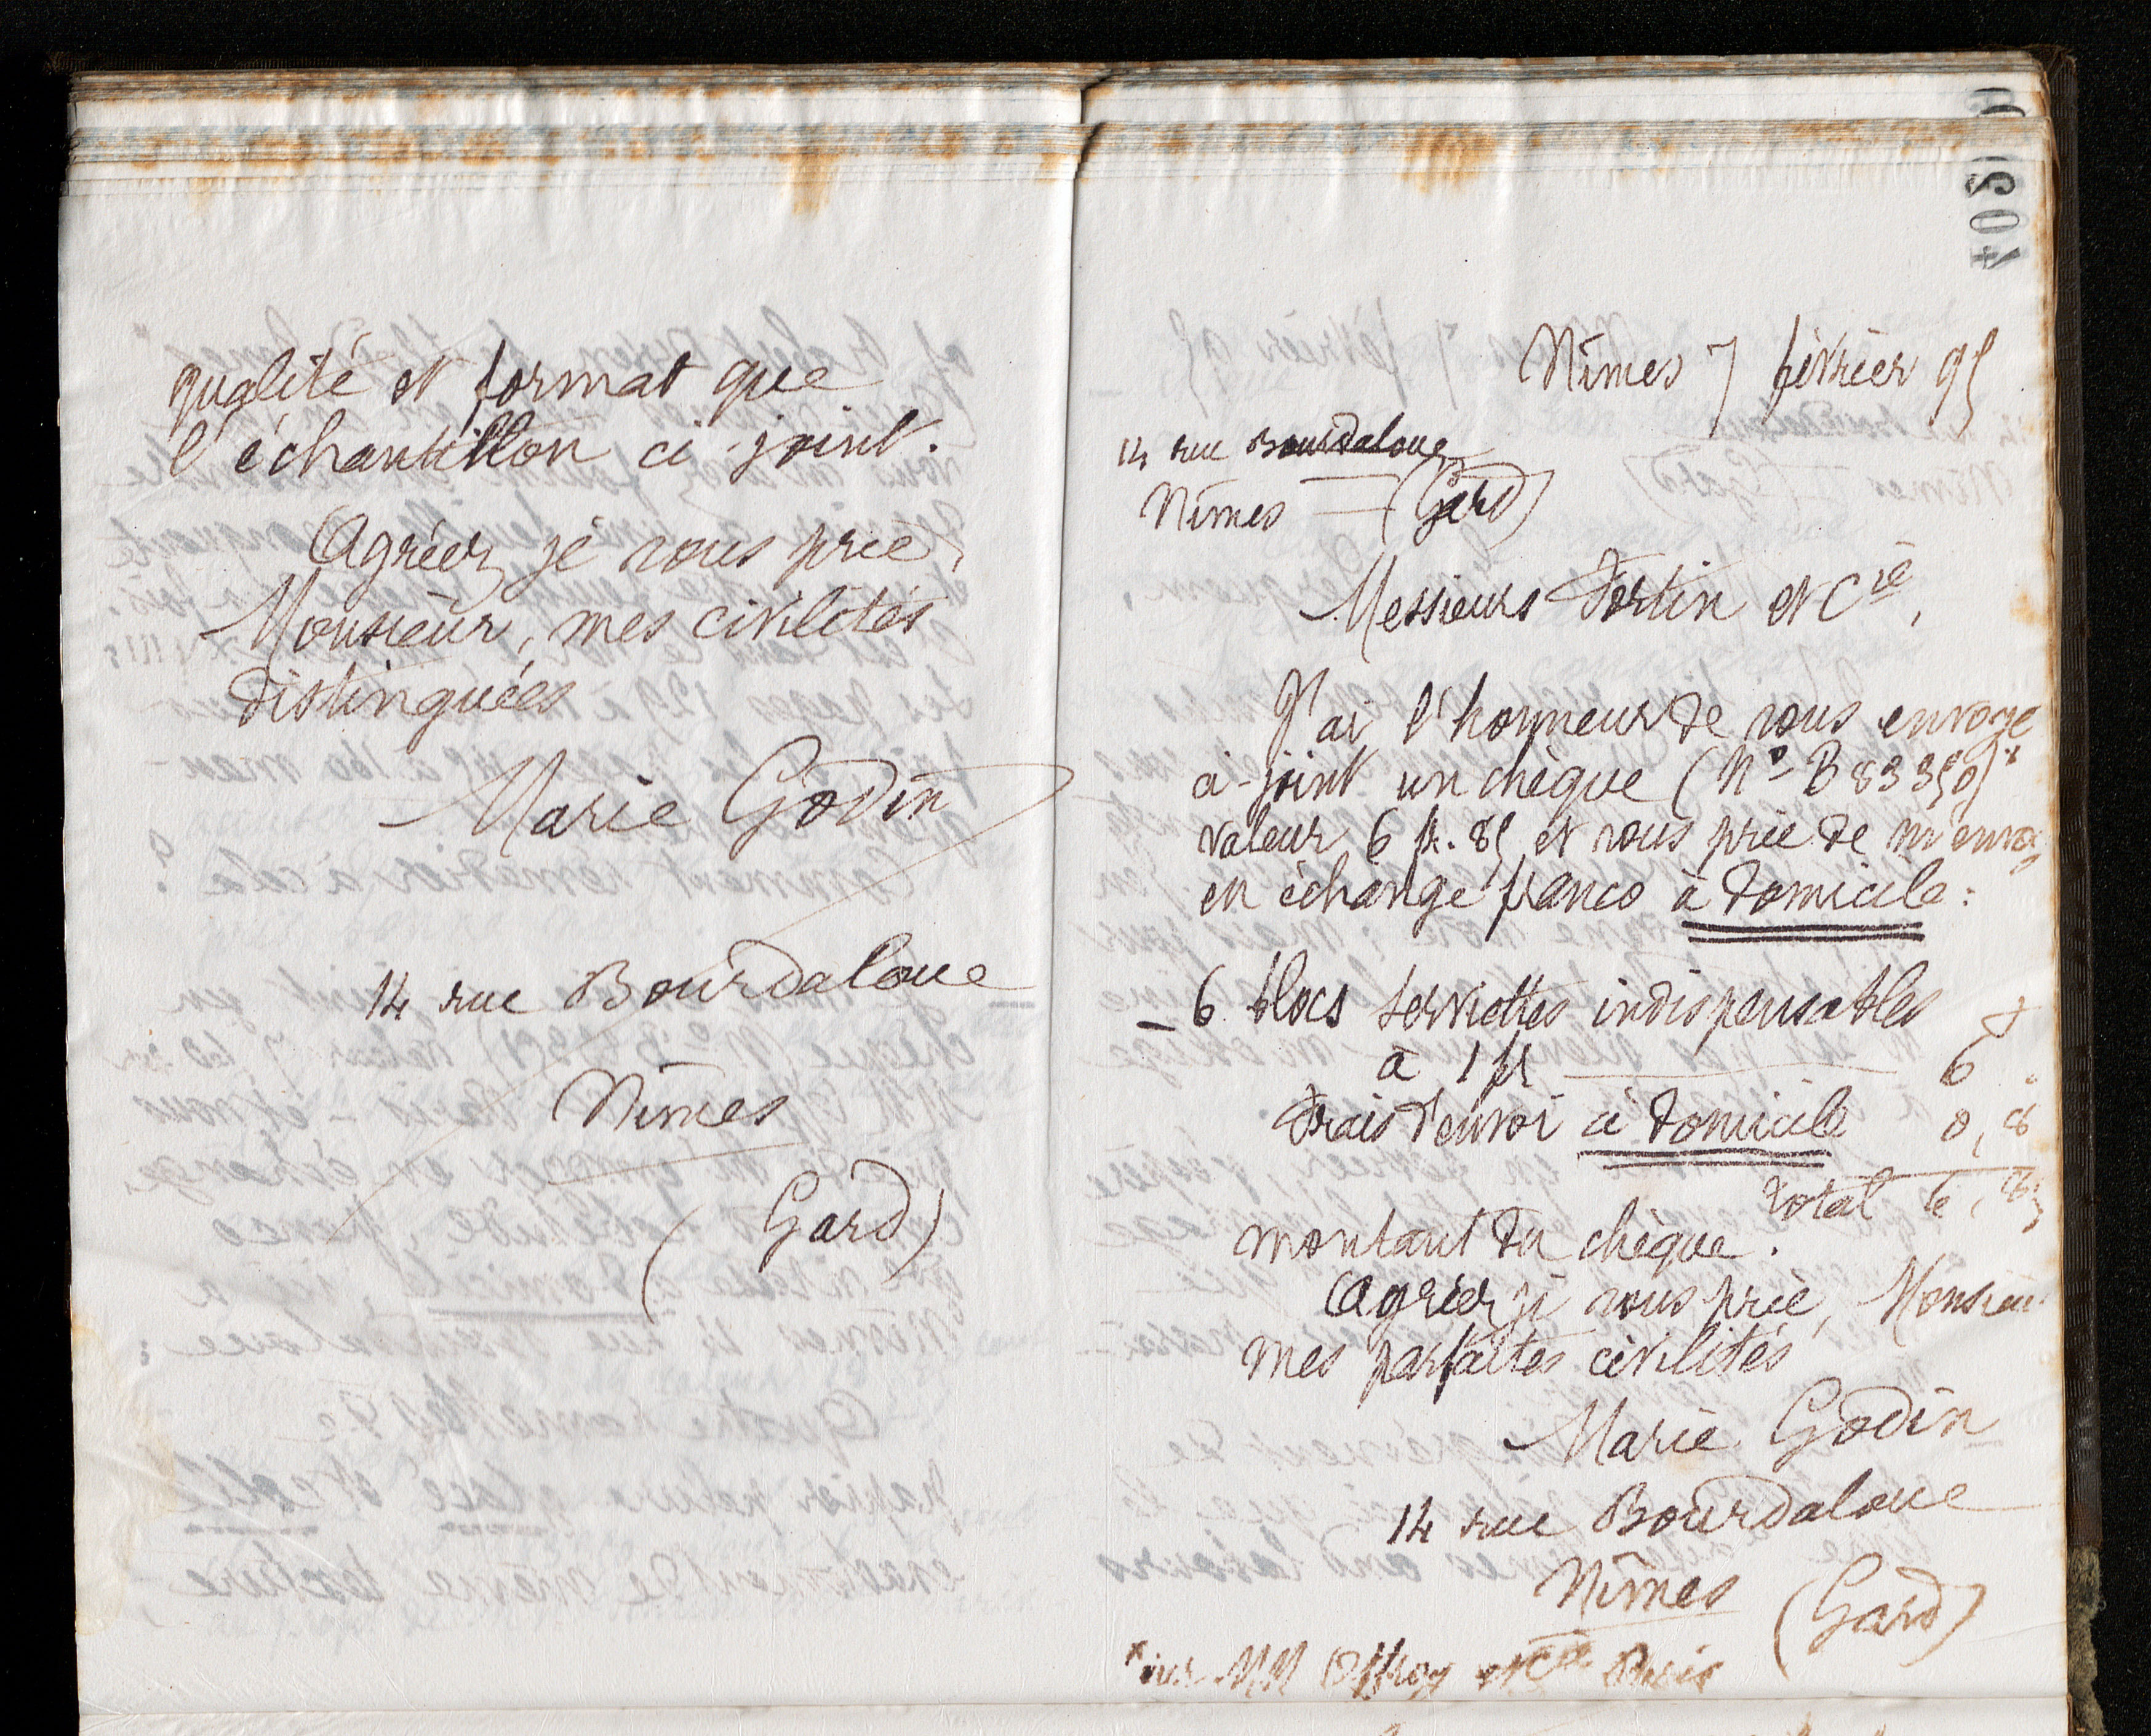 qualité et format que
l'échantillon ci-joint.
Agréez, je vous prie,
Monsieur, mes civilités
distinguées
Marie Godin
14 rue Bourdaloue
Nîmes
(Gard)
Nîmes 7 février 95
14 rue Bourdaloue
Nîmes — (Gard)
Messieurs Fortin et Cie,
J'ai l'honneur de vous envoye
ci-joint un chèque (No B 83350)*
valeur 6 fr. 85 et vous prie de m'envo
en échange franco à domicile :
- 6 blocs serviettes indispensables
à 1 fr 6
Frais d'envoi à domicile 0,8
Total 6,85
montant du chèque.
Agréez je vous prie, Monsieu
mes parfaites civilités
Marie Godin
14 rue Bourdaloue
Nîmes (Gard)
* sur MM Offroy et Cie Paris